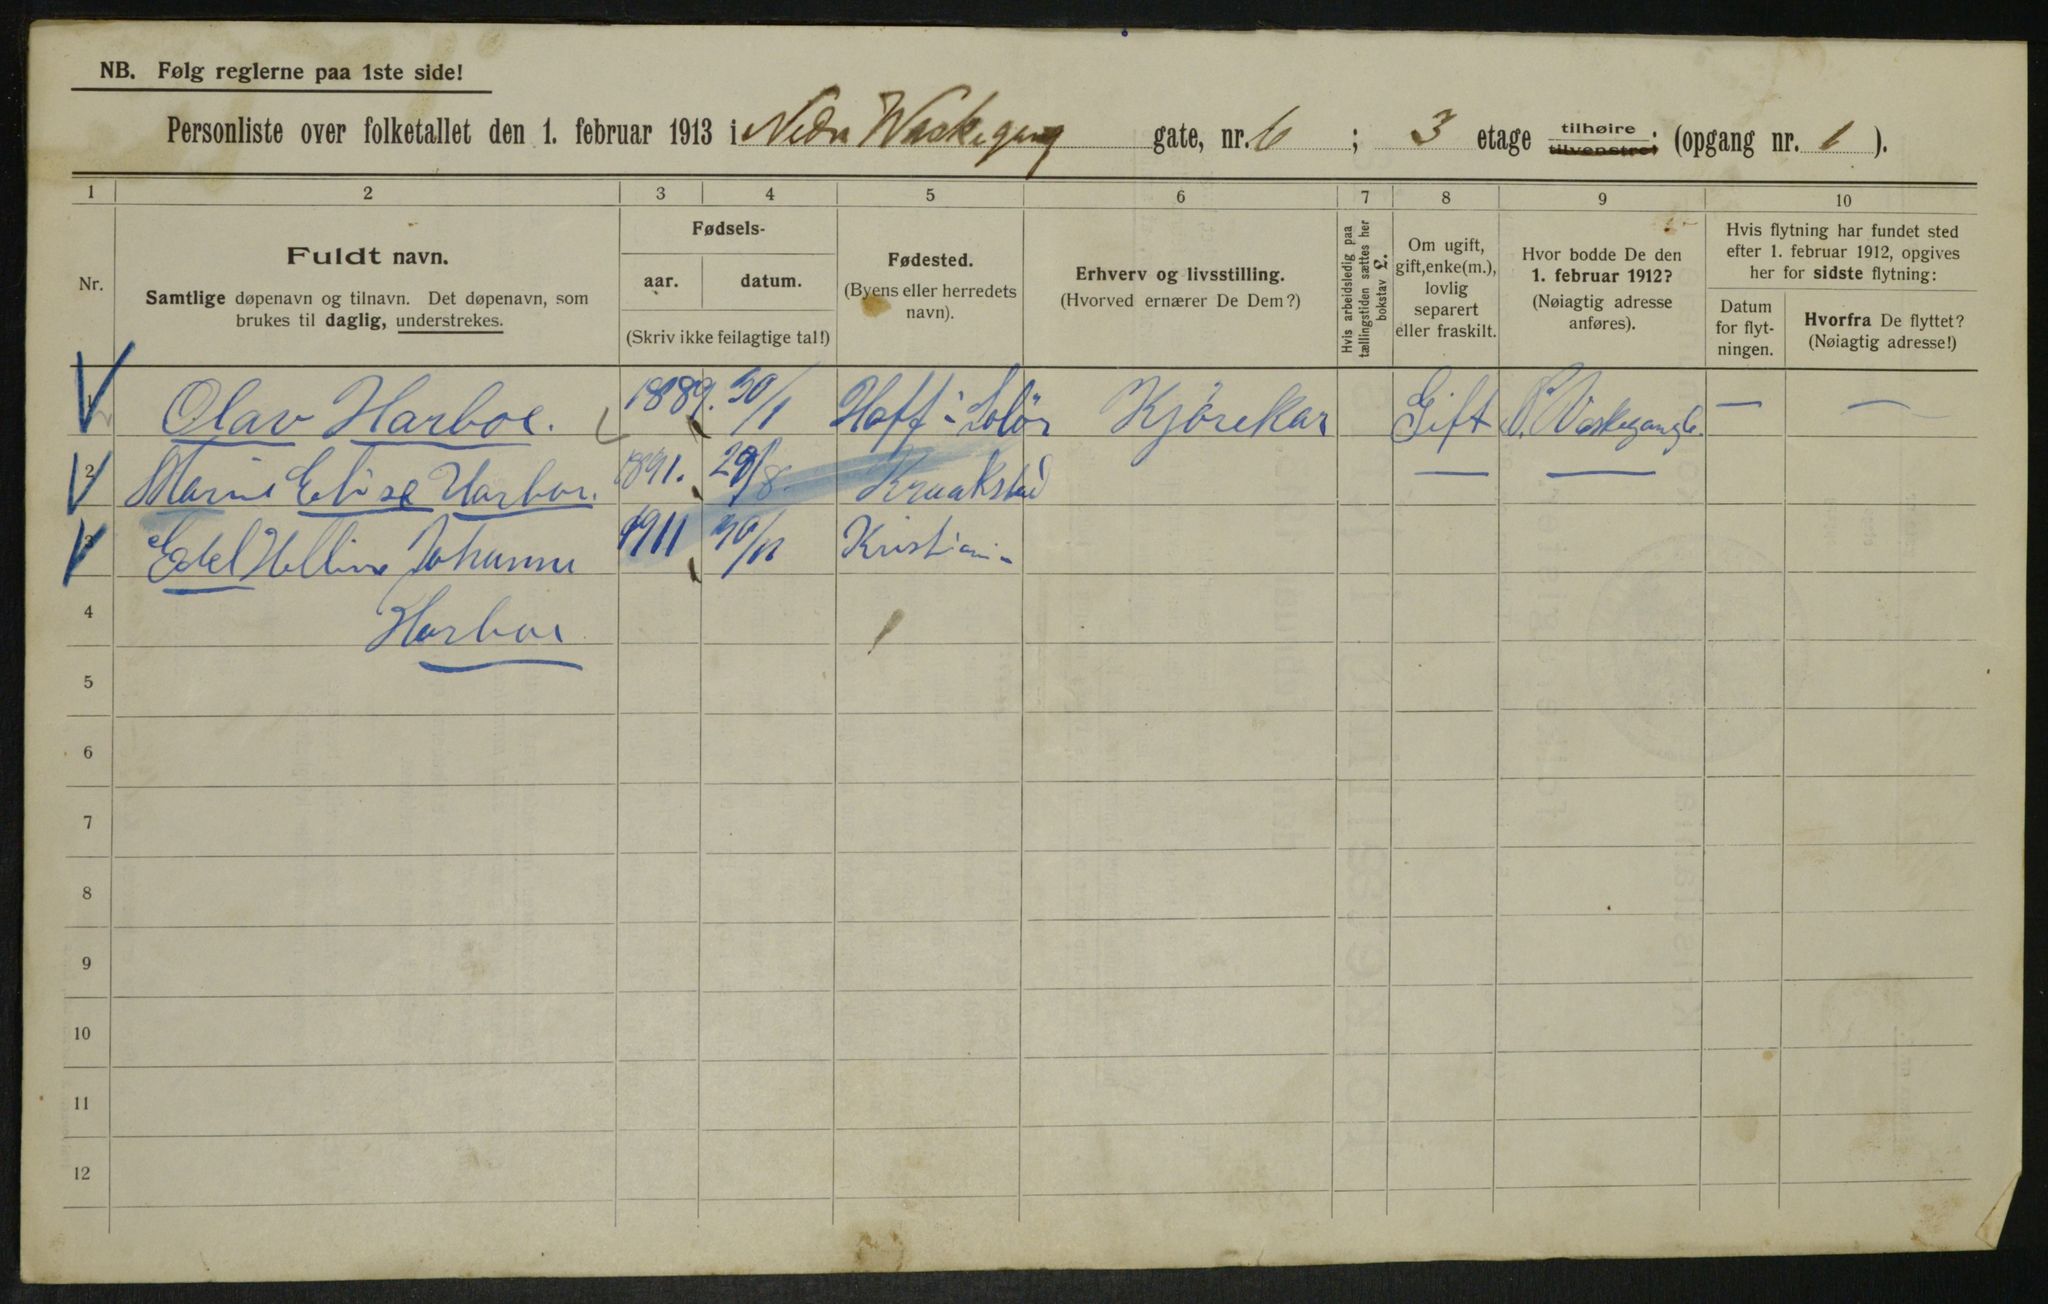 NB. Følg reglerne paa 1ste side!
Personliste over folketallet den 1. februar 1913 i Nedre Vaskegang gate, nr. 6 ; 3 etage tilhøire tilvenstre; (opgang nr. 1 ).
1 2 3 4 5 6 7 8 9 10
Nr.
Fuldt navn.
Samtlige døpenavn og tilnavn. Det døpenavn, som
brukes til daglig, understrekes.
Fødsels-
aar. datum.
(Skriv ikke feilagtige tal!)
Fødested.
(Byens eller herredets
navn).
Erhverv og livsstilling.
(Hvorved ernærer De Dem?)
Hvis arbeidsledig paa
tællingstiden sættes her
bokstav £.
Om ugift,
gift, enke(m.),
lovlig
separert
eller fraskilt.
Hvor bodde De den
1. februar 1912?
(Nøiagtig adresse
anføres).
Hvis flytning har fundet sted
efter 1. februar 1912, opgives
her for sidste flytning:
Datum
for flyt-
ningen.
Hvorfra De flyttet?
(Nøiagtig adresse!)
1 Olav Harboe. 1889. 30/1 Hoff - Solör Kjörekar Gift N. Vaskegang 6. — —
2 Marie Elise Harboe. 1891. 29/8. Kraakstad — —
3 Edel Johanne 1911 30/11
4 Harboe
5
6
7
8
9
10
11
12